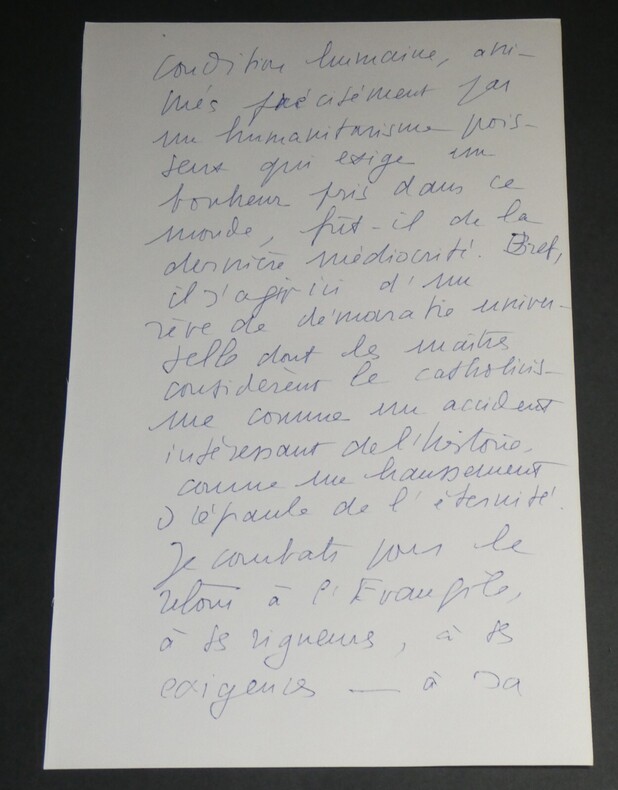 condition humaine, ani-
més précisément par
un humanitarisme pois-
seux qui exige un
bonheur pris dans ce
monde, fût-il de la
dernière médiocrité. Bref,
il s'agit ici d'un
rêve de démocratie univer-
selle dont les maîtres
considèrent le catholicis-
me comme un accident
intéressant de l'histoire,
comme un haussement
d'épaule de l'éternité.
Je combats pour le
retour à l'Evangile,
à ses rigueurs, à ses
exigences — à sa